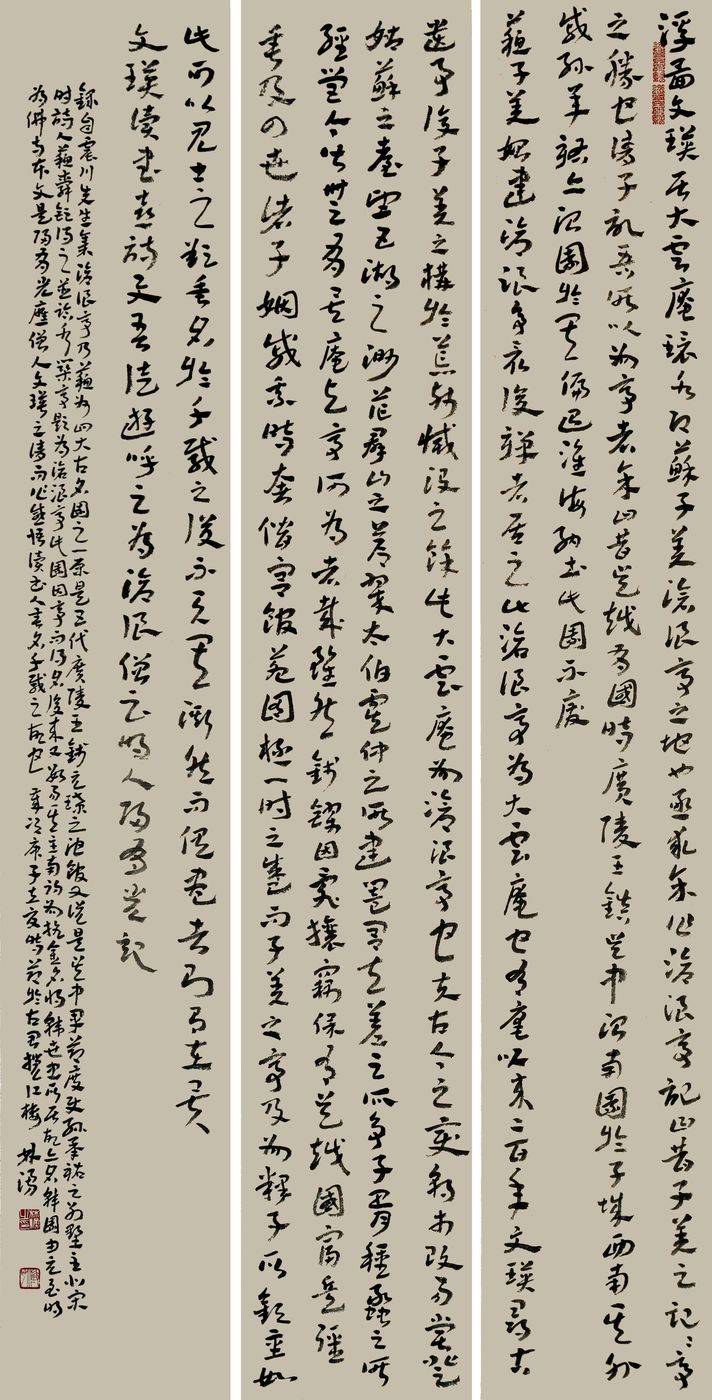 浮圖文瑛居大雲庵環水即蘇子美滄浪亭之地也亟求余作滄浪亭記曰昔子美之記記亭
之勝也請子記吾所以為亭者余曰昔吳越有國時廣陵王鎮吳中治南園於子城西南其外
戚孫承祐亦治園於其偏迨淮海納土此園不廢
蘇子美始建滄浪亭最後禪者居之此滄浪亭為大雲庵也有庵以來二百年文瑛尋古
遺事復子美之構於荒殘滅沒之餘此大雲庵為滄浪亭也夫古今之變朝市改易嘗登
姑蘇之臺望五湖之渺茫群山之蒼翠太伯虞仲之所建闔閭夫差之所爭子胥種蠡之所
經營今皆無有矣庵與亭何為者哉雖然錢鏐因亂攘竊保有吳越國富兵強
垂及四世諸子姻戚乘時奢僭宮館苑囿極一時之盛而子美之亭乃為釋子所欽重如
此可以見士之欲垂名於千載之後不與其澌然而俱盡者則有在矣
文瑛讀書喜詩與吾徒遊呼之為滄浪僧云明人歸有光記
錄自震川先生集滄浪亭乃蘇州四大古名園之一原是五代廣陵王錢元璙之池館又說是吳中軍節度使孫承祐之別墅至北宋
時詩人蘇舜欽得之並築亭題為滄浪亭此園因亭而得名後來又數易其主南宋初為抗金名將韓世忠所居故亦名韓園由元至明
為佛寺本文是歸有光應僧人文瑛之請而作讀書人垂名千載之故也歲次庚子立夏時節於古君攬江樓林濤